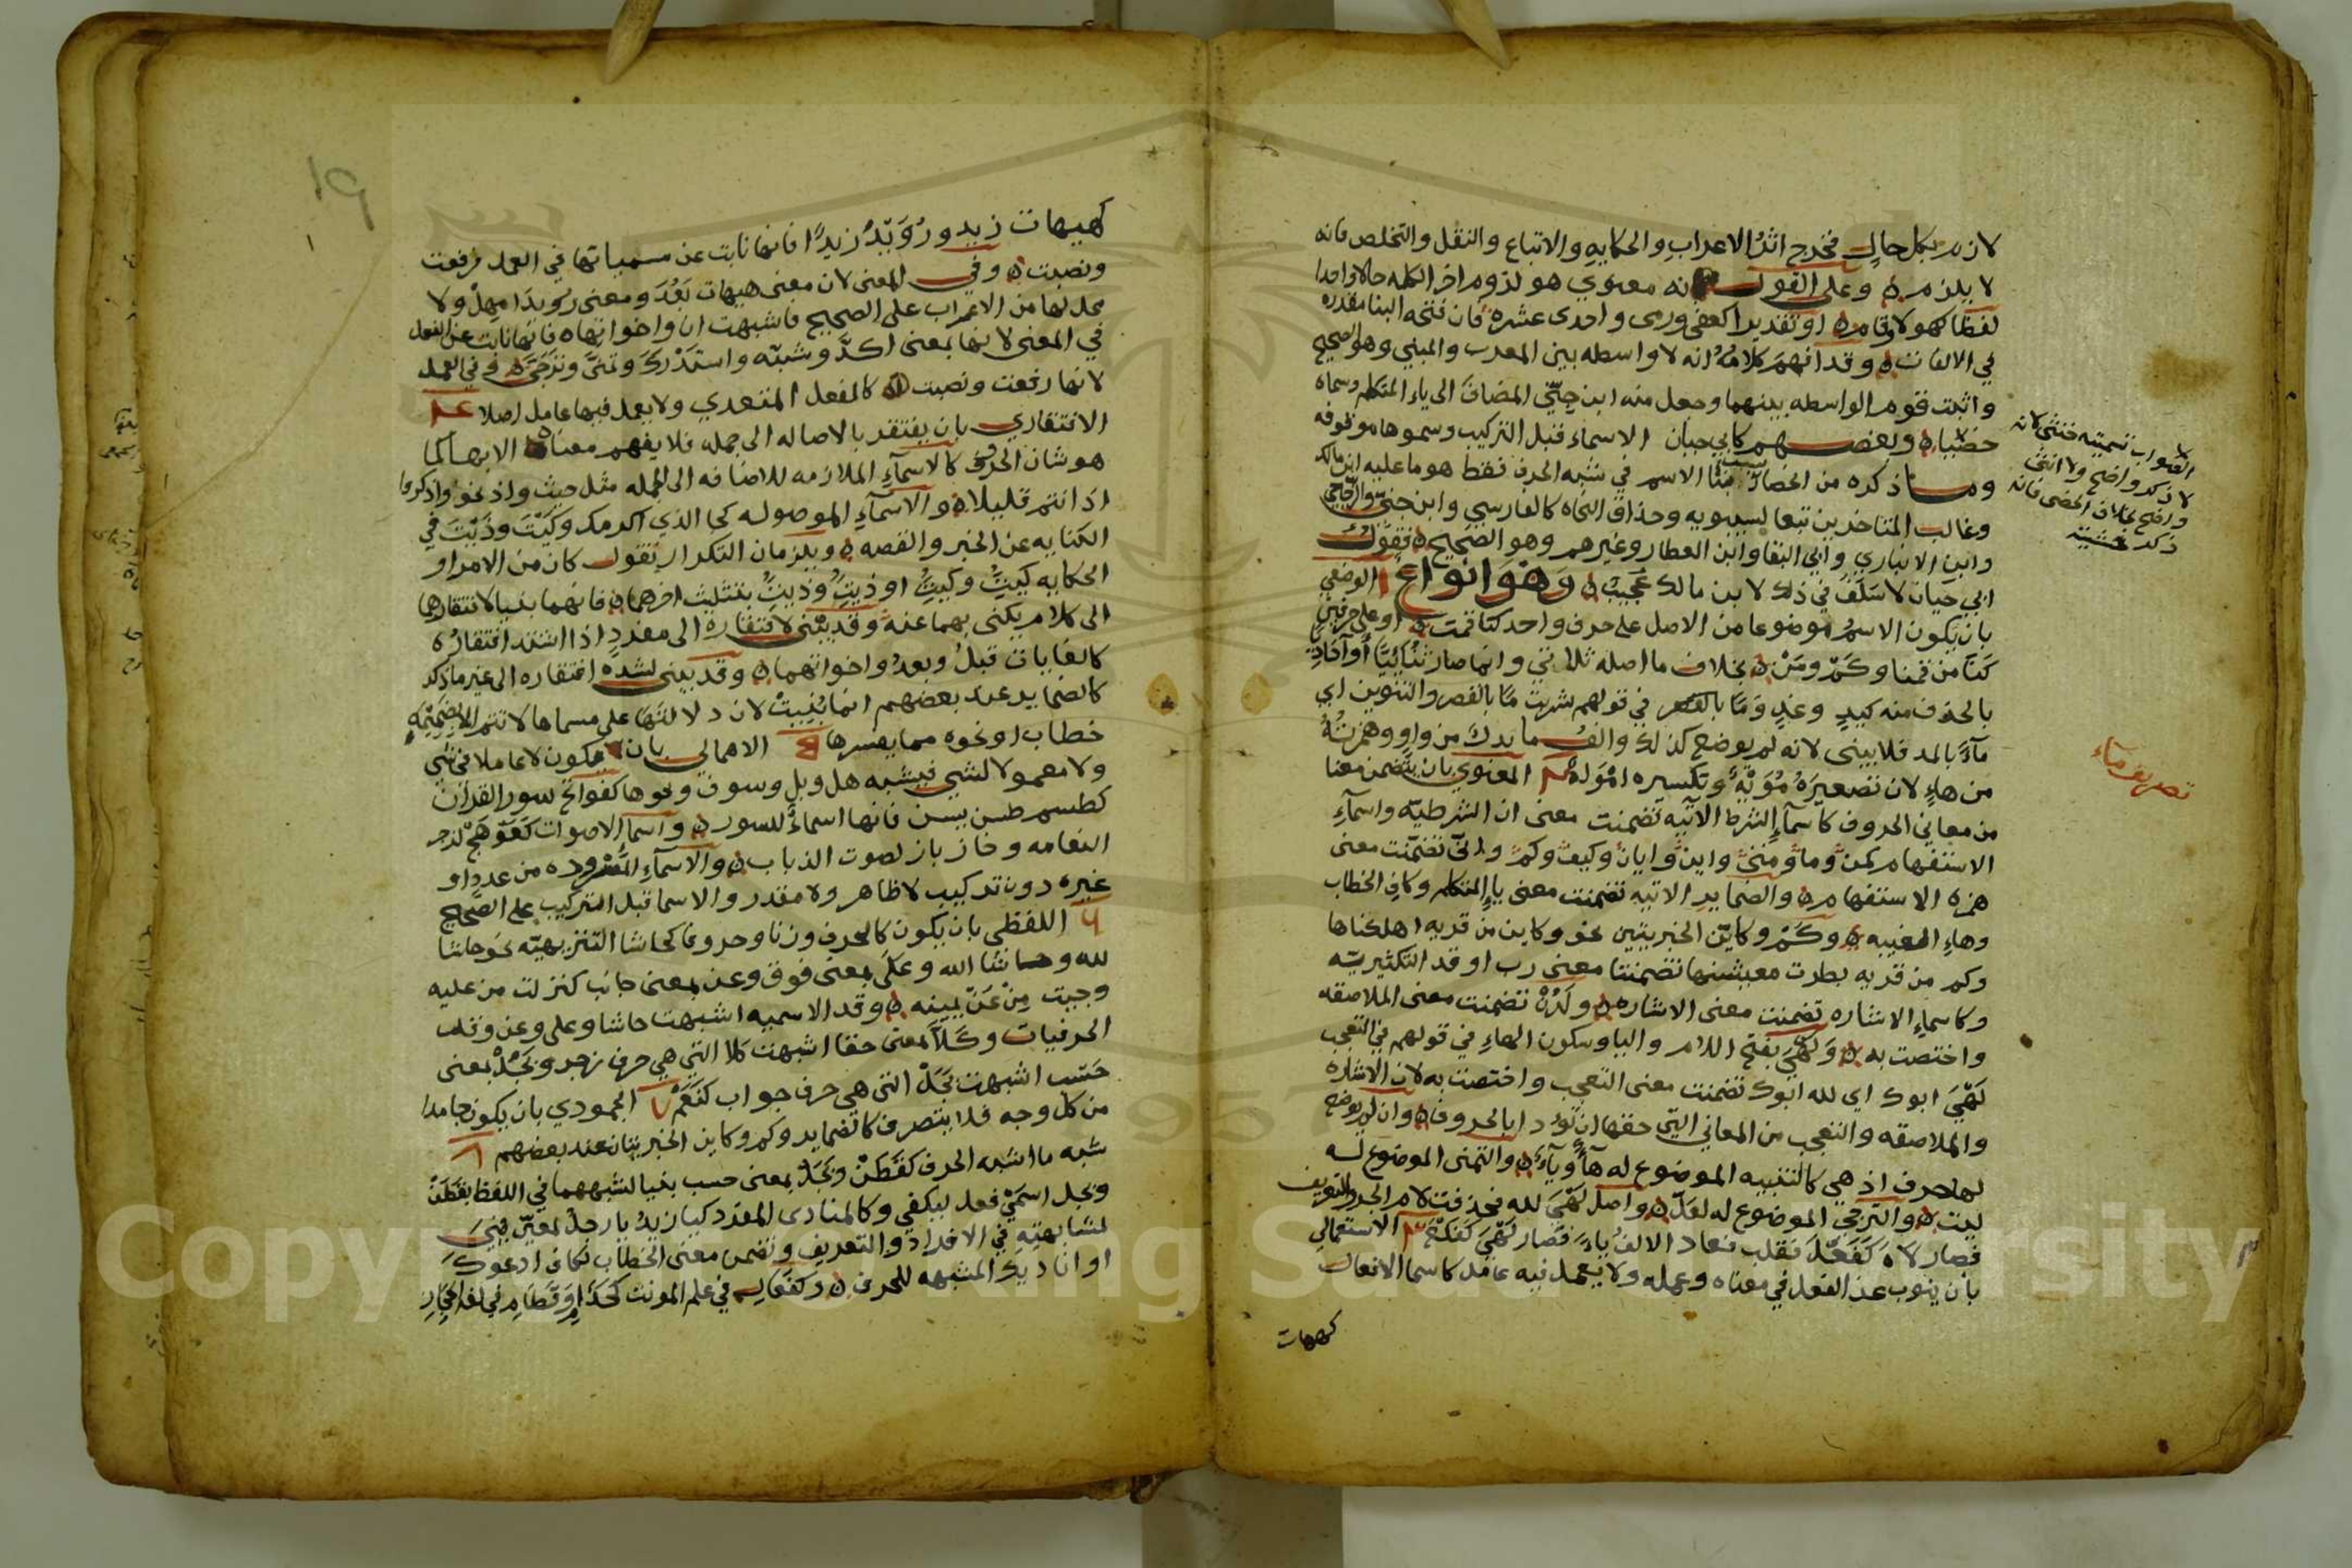 لازم بكل حال فخرج اثر الاعراب والحكايه والاتباع والنقل والتخلص فانه
لا يلزم وعلى القول انه معنوي هو لزوم اخر الكلمه حالا واحدا
لفظا كهولاء وقام او تقديرا كعفى ورمى واحدى عشره فان فتحه البنا مقدره
في الالفات وقد افهم كلامه انه لا واسطه بين المعرب والمبني وهو الصحيح
واثبت قوم الواسطه بينهما وجعل منه ابن جني المضاف الى ياء المتكلم وسماه
خصيا وبعضهم كابي حيان الاسماء قبل التركيب وسموها موقوفه
وما ذكره من انحصار سبب بناء الاسم في شبه الحرف فقط هو ما عليه ابن مالك
وغالب المتاخرين تبعا لسيبويه وحذاق النحاه كالفارسي وابن جني والزجاجي
وابن الانباري وابي البقا وابن العطار وغيرهم وهو الصحيح فقول
ابي حيان لا سلف في ذلك لابن مالك عجيب وهو انواع ١ الوضعي
بان يكون الاسم موضوعا من الاصل على حرف واحد كتا قمت او على حرفين
كنا من قمنا وكم ومن بخلاف ما اصله ثلاثي وانما صار ثنائيا او احاديا
بالحذف منه كيد وغد وما بالقصر في قولهم شربت ما بالقصر والتنوين اي
ماء بالمد فلا يبنى لانه لم يوضع كذلك والف ما بدل من واو وهمزته
من هاء لان تصغيره مويه وتكسيره امواه ٢ المعنوي بان يتضمن معنا
من معاني الحروف كاسماء الشرط الاتيه تضمنت معنى ان الشرطيه واسماء
الاستفهام كمن وما ومتى واين وايان وكيف وكم وانى تضمنت معنى
همزه الاستفهام والضماير الاتيه تضمنت معنى ياء المتكلم وكاف الخطاب
وهاء المغيبه وكم وكاين الخبريتين نحو وكاين من قريه اهلكناها
وكم من قريه بطرت معيشتها تضمنتا معنى رب او قد التكثيريه
وكاسماء الاشاره تضمنت معنى الاشاره ولدن تضمنت معنى الملاصقه
واختصت به ولهي بفتح اللام والياء وسكون الهاء في قولهم في التعجب
لهي ابوك اي لله ابوك تضمنت معنى التعجب واختصت به لان الاشاره
والملاصقه والتعجب من المعاني التي حقها ان تؤدا بالحروف وان لم يوضع
لها حرف اذ هي كالتنبيه الموضوع له ها ويا والتمني الموضوع له
ليت والترجي الموضوع له لعل واصل لهي لله فحذفت لام الجر والتعريف
فصار لاه كفعل فقلب فعاد الالف ياء فصار لهي كفلع ٣ الاستعمالي
بان ينوب عن الفعل في معناه وعمله ولا يعمل فيه عامل كاسما الافعال
كهيهات
الصواب تسميته خنثى لانه
لا ذكر واضح ولا انثى
واضح بخلاف الخصي فانه
ذكر
تصريف ماء
١٩
كهيهات زيد ورويد زيدا فانها نابت عن مسمياتها في العمل فرفعت
ونصبت وفي المعنى لان معنى هيهات بعد ومعنى رويدا مهل ولا
محل لها من الاعراب على الصحيح فاشبهت ان واخواتها فانها نابت عن الفعل
في المعنى لانها بمعنى اكد وشبه واستدرك وتمنى وترجى وفي العمل
لانها رفعت ونصبت كالفعل المتعدي ولا يعمل فيها عامل اصلا ٤
الافتقاري بان يفتقر بالاصاله الى جمله فلا يفهم معناه الا بها كما
هو شان الحرف كالاسماء الملازمه للاضافه الى الجمله مثل حيث واذ نحو واذكروا
اذ انتم قليلا والاسماء الموصوله كجا الذي اكرمك وكيت وذيت في
الكنايه عن الخبر والقصه ويلزمان التكرار تقول كان من الامر او
الحكايه كيت وكيت او ذيت وذيت بتثليث اخرهما فانهما بنيا لافتقارهما
الى كلام يكنى بهما عنه وقد يبنى لافتقاره الى مفرد اذا اشتد افتقاره
كالغايات قبل وبعد واخواتهما وقد يبنى لشده افتقاره الى غير ما ذكر
كالضماير عند بعضهم انما بنيت لان دلالتها على مسماها لا تتم الا بضميمه
خطاب او نحوه مما يفسرها ٥ الاهمالي بان يكون لا عاملا في شي
ولا معمولا لشي فيشبه هل وبل وسوف ونحوها كفواتح سور القران
كطسم طس يس فانها اسماء للسور واسما الاصوات كعوهج لزجر
النعامه وخاز باز لصوت الذباب والاسماء المسروده من عدد او
غيره دون تركيب لا ظاهر ولا مقدر والاسما قبل التركيب على الصحيح
٦ اللفظي بان يكون كالحرف وزنا وحروفا كحاشا التنزيهيه نحو حاشا
لله وحاشا الله وعلى بمعنى فوق وعن بمعنى جانب كنزلت من عليه
وجيت من عن يمينه وقد الاسميه اشبهت حاشا وعلى وعن وقد
الحرفيات وكلا بمعنى حقا اشبهت كلا التي هي حرف زجر وبجل بمعنى
حسب اشبهت بجل التي هي حرف جواب كنعم ٧ الجمودي بان يكون جامدا
من كل وجه فلا يتصرف كالضماير وكم وكاين الخبريتان عند بعضهم ٨
شبه ما اشبه الحرف كقطن وبجل بمعنى حسب بنيا لشبههما في اللفظ بقطن
وبجل اسمي فعل ليكفي وكالمنادى المفرد كيا زيد يا رجل لمعين بني
لمشابهته في الافراد والتعريف وتضمن معنى الخطاب لكاف ادعوك
او اناديك المشبهه للحرف وكفعال في علم المونث كحذام وقطام في لغه الحجاز